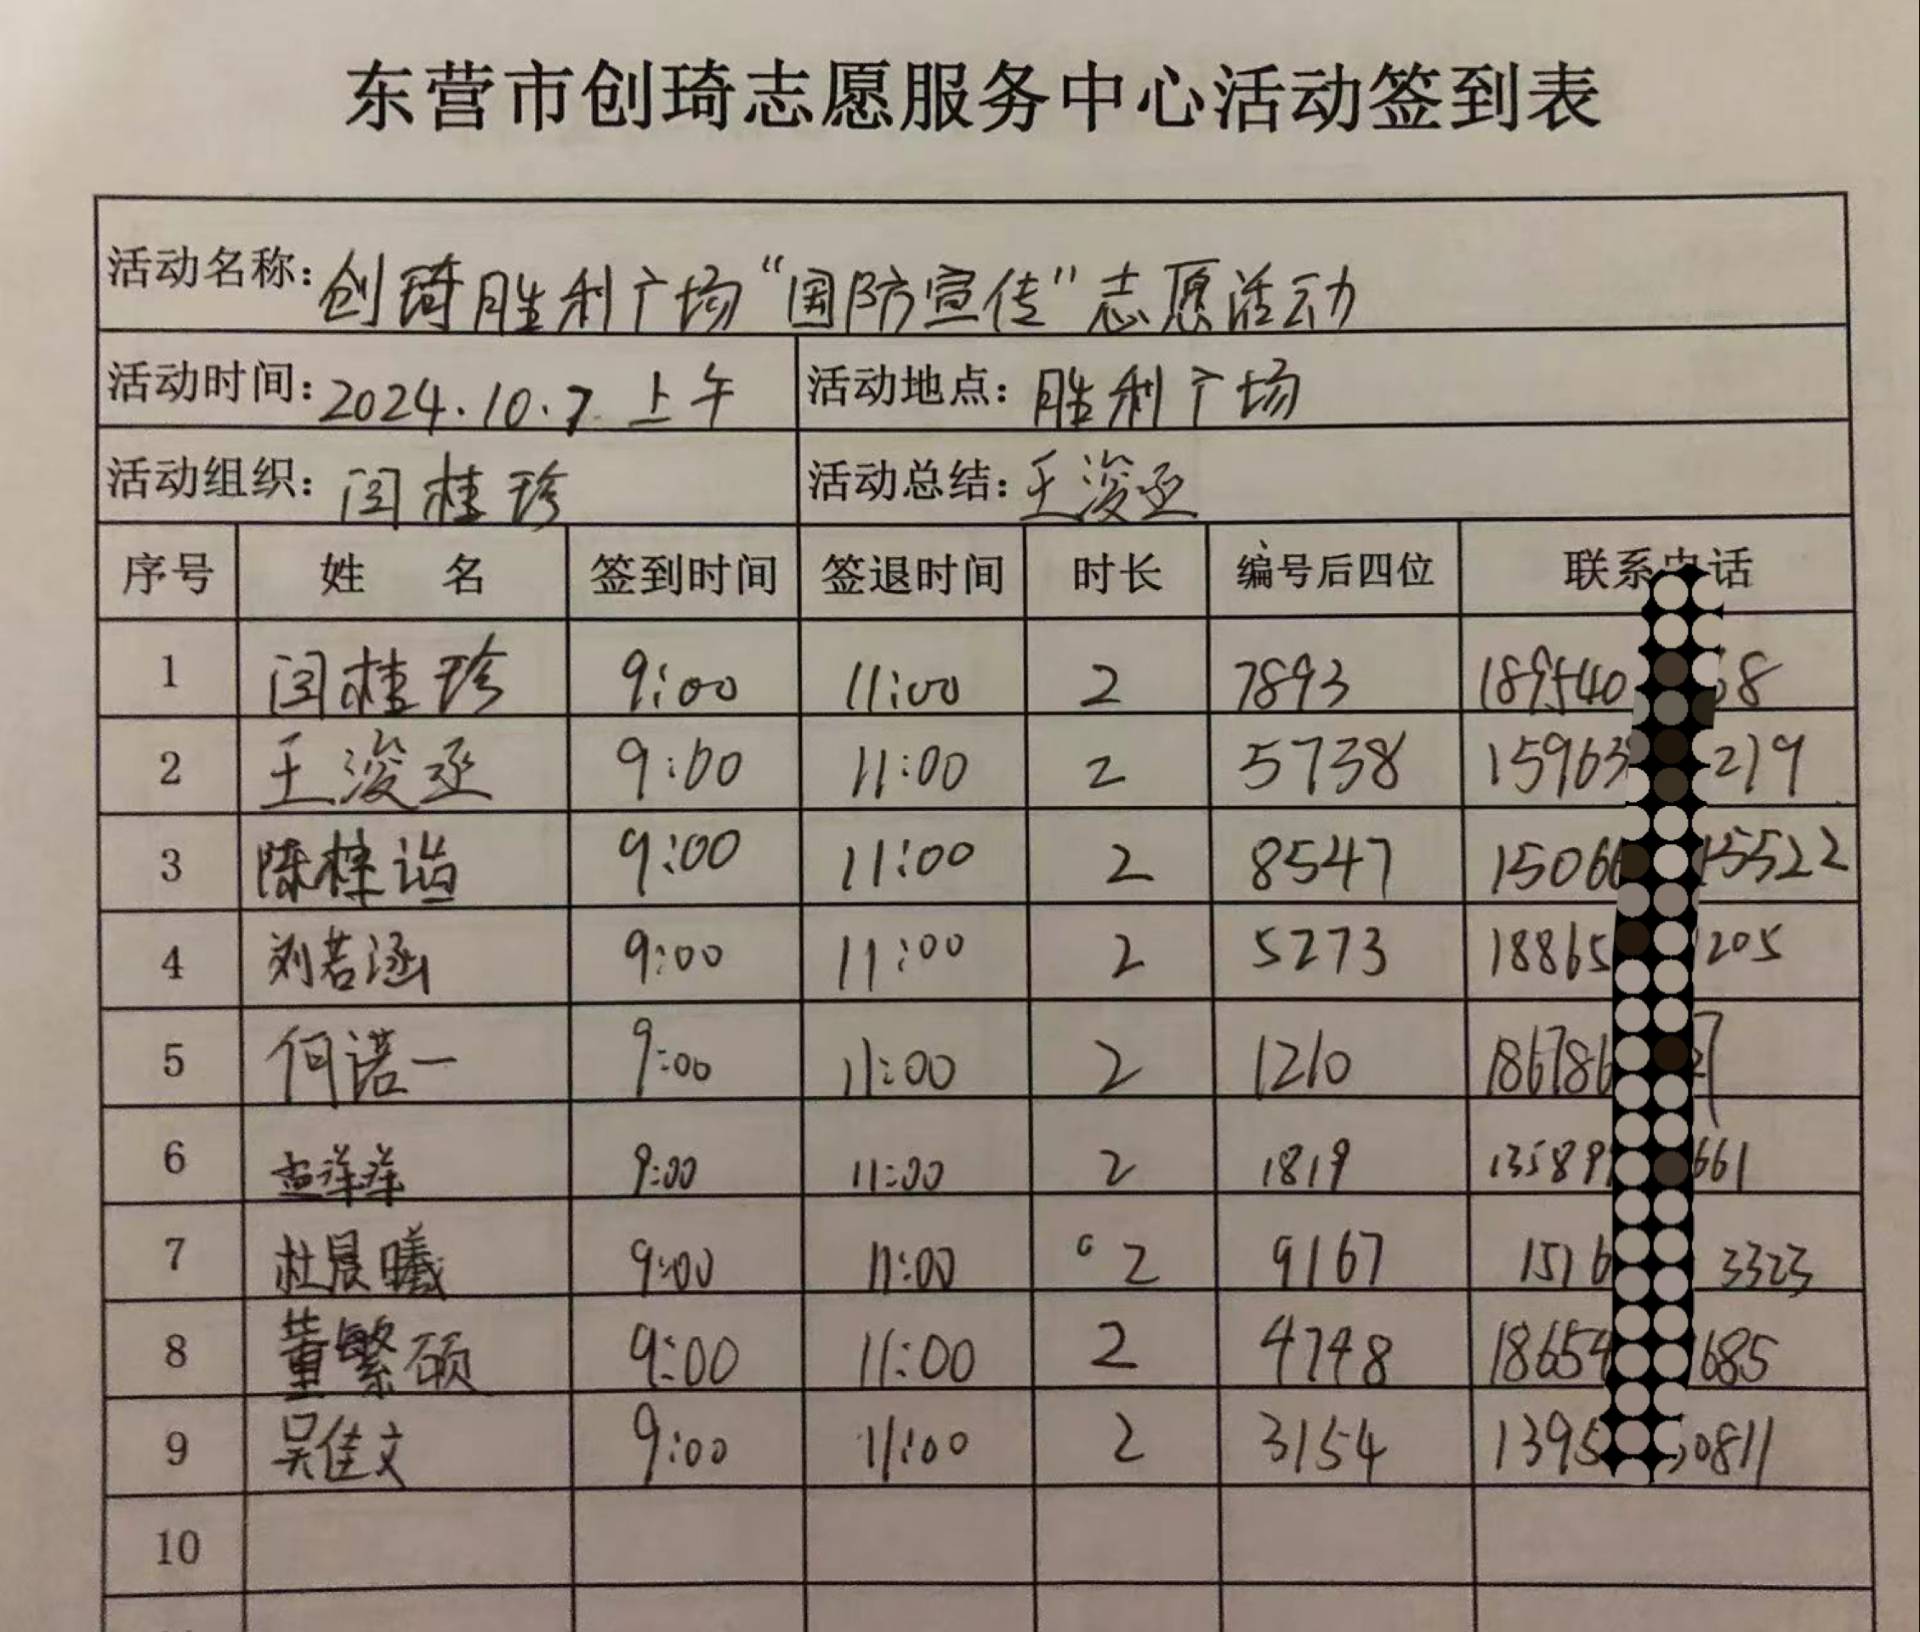 东营市创琦志愿服务中心活动签到表
活动名称: 创琦胜利广场“国防宣传”志愿活动
活动时间: 2024.10.7 上午 活动地点: 胜利广场
活动组织: 闫桂珍 活动总结: 王浚丞
序号 姓 名 签到时间 签退时间 时长 编号后四位 联系 话
1 闫桂珍 9:00 11:00 2 7893 189540 68
2 王浚丞 9:00 11:00 2 5738 15963 219
3 陈梓 9:00 11:00 2 8547 1506 5522
4 刘若涵 9:00 11:00 2 5273 18865 205
5 何诺一 9:00 11:00 2 1210 186786 7
6 洋洋 9:00 11:00 2 1819 13589 661
7 杜晨曦 9:00 11:00 2 9167 1516 3323
8 董繁硕 9:00 11:00 2 4748 18654 685
9 吴佳文 9:00 11:00 2 3154 1395 0811
10